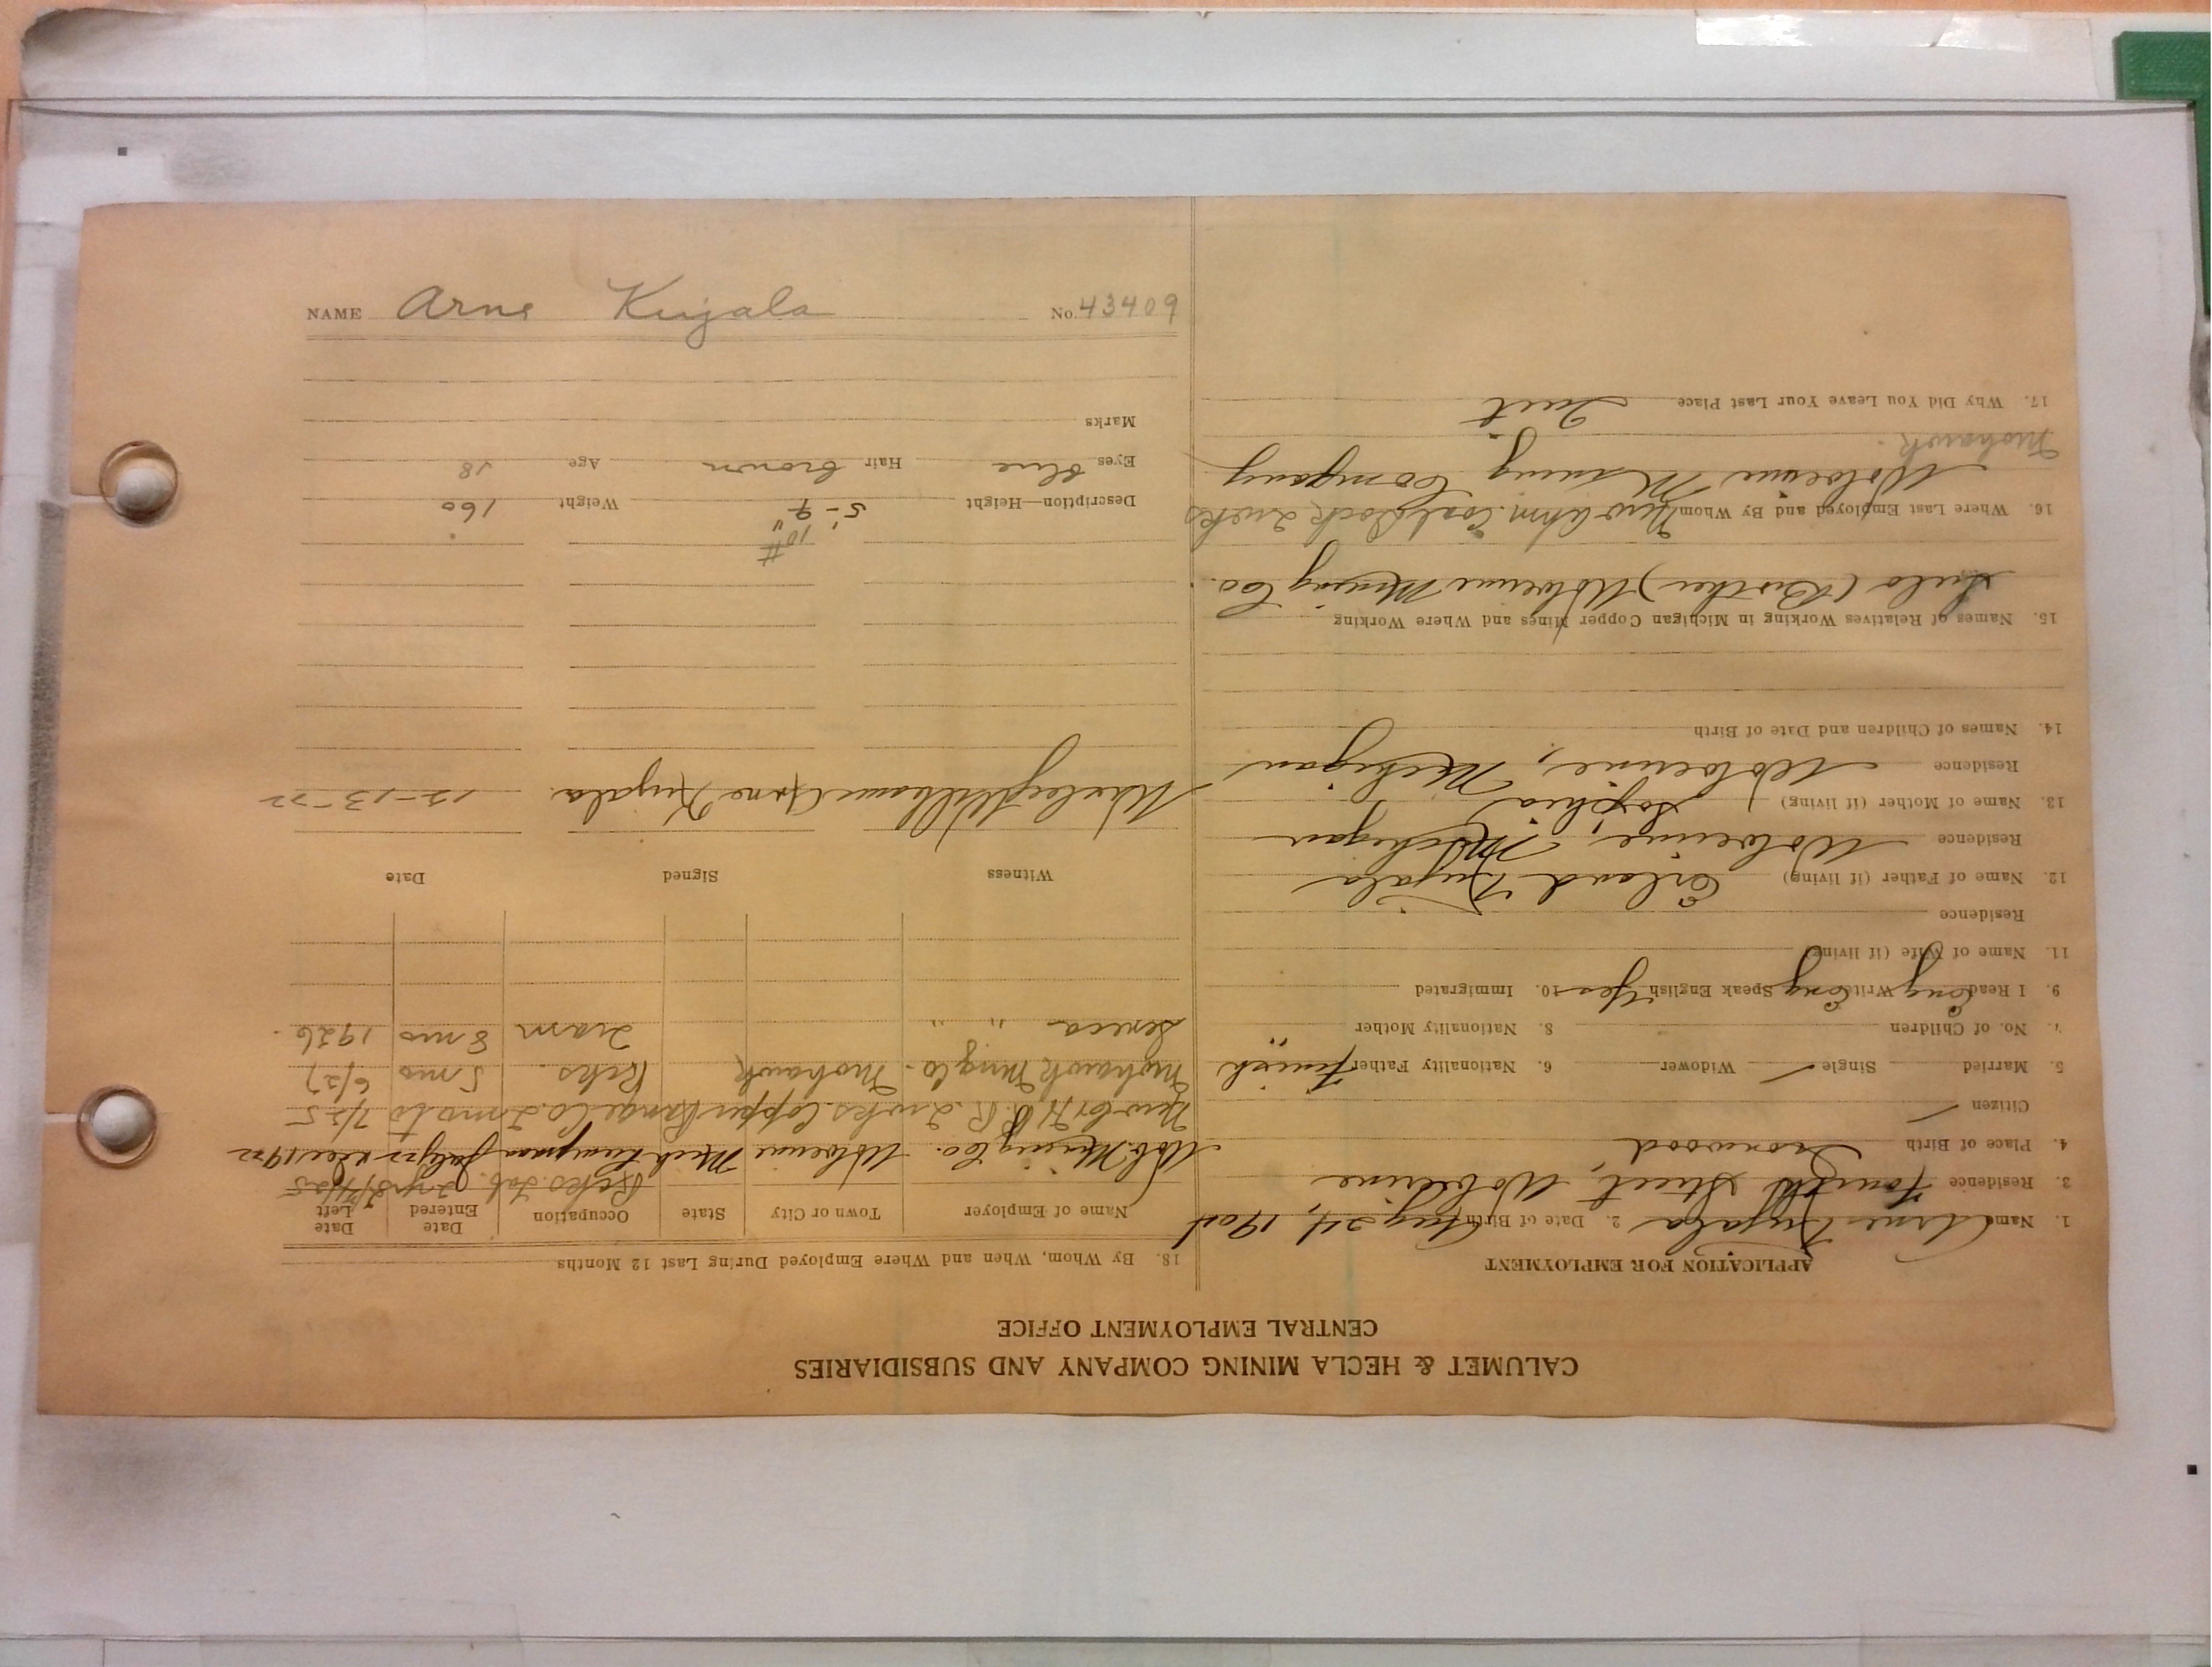 CALUMET & HECLA MINING COMPANY AND SUBSIDIARIES
CENTRAL EMPLOYMENT OFFICE
APPLICATION FOR EMPLOYMENT
1. Name Arne Kujala 2. Date of Birth Aug 24, 1904
3. Residence Fourth Street, Wolverine
4. Place of Birth Ironwood
Citizen
5. Married Single Widower 6. Nationality Father Finnish
7. No. of Children 8. Nationality Mother "
9. I Read Eng Write Eng Speak English Yes 10. Immigrated
11. Name of Wife (if living)
Residence
12. Name of Father (if living) Erland Kujala
Residence Wolverine, Michigan
13. Name of Mother (if living) Sophia
Residence Wolverine, Michigan
14. Names of Children and Date of Birth
15. Names of Relatives Working in Michigan Copper Mines and Where Working
(Brother) Wolverine Mining Co.
16. Where Last Employed and By Whom Coal Dock
Wolverine Mining Company
Mohawk.
17. Why Did You Leave Your Last Place Quit
18. By Whom, When and Where Employed During Last 12 Months
Name of Employer Town or City State Occupation Date Entered Date Left
Wolv. Mining Co. Wolverine Mich July 22 Dec 1922
Copper Range Co. 2 mo to 7/25
Mohawk Mng Co. Mohawk 5 mo 6/27
Seneca " " Tram 8 mo 1926.
Witness Signed Date
Williams Arne Kujala 12-13-22
10#
Description—Height 5'-9" Weight 160
Eyes blue Hair brown Age 18
Marks
NAME Arne Kujala No. 43409